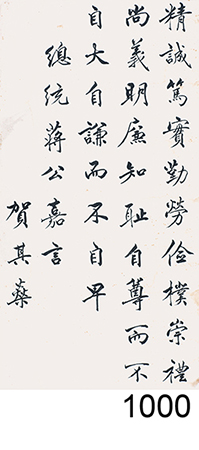 精誠篤實勤勞儉樸崇禮
尚義明廉知耻自尊而不
自大自謙而不自卑
總統蔣公嘉言
賀其燊
1000